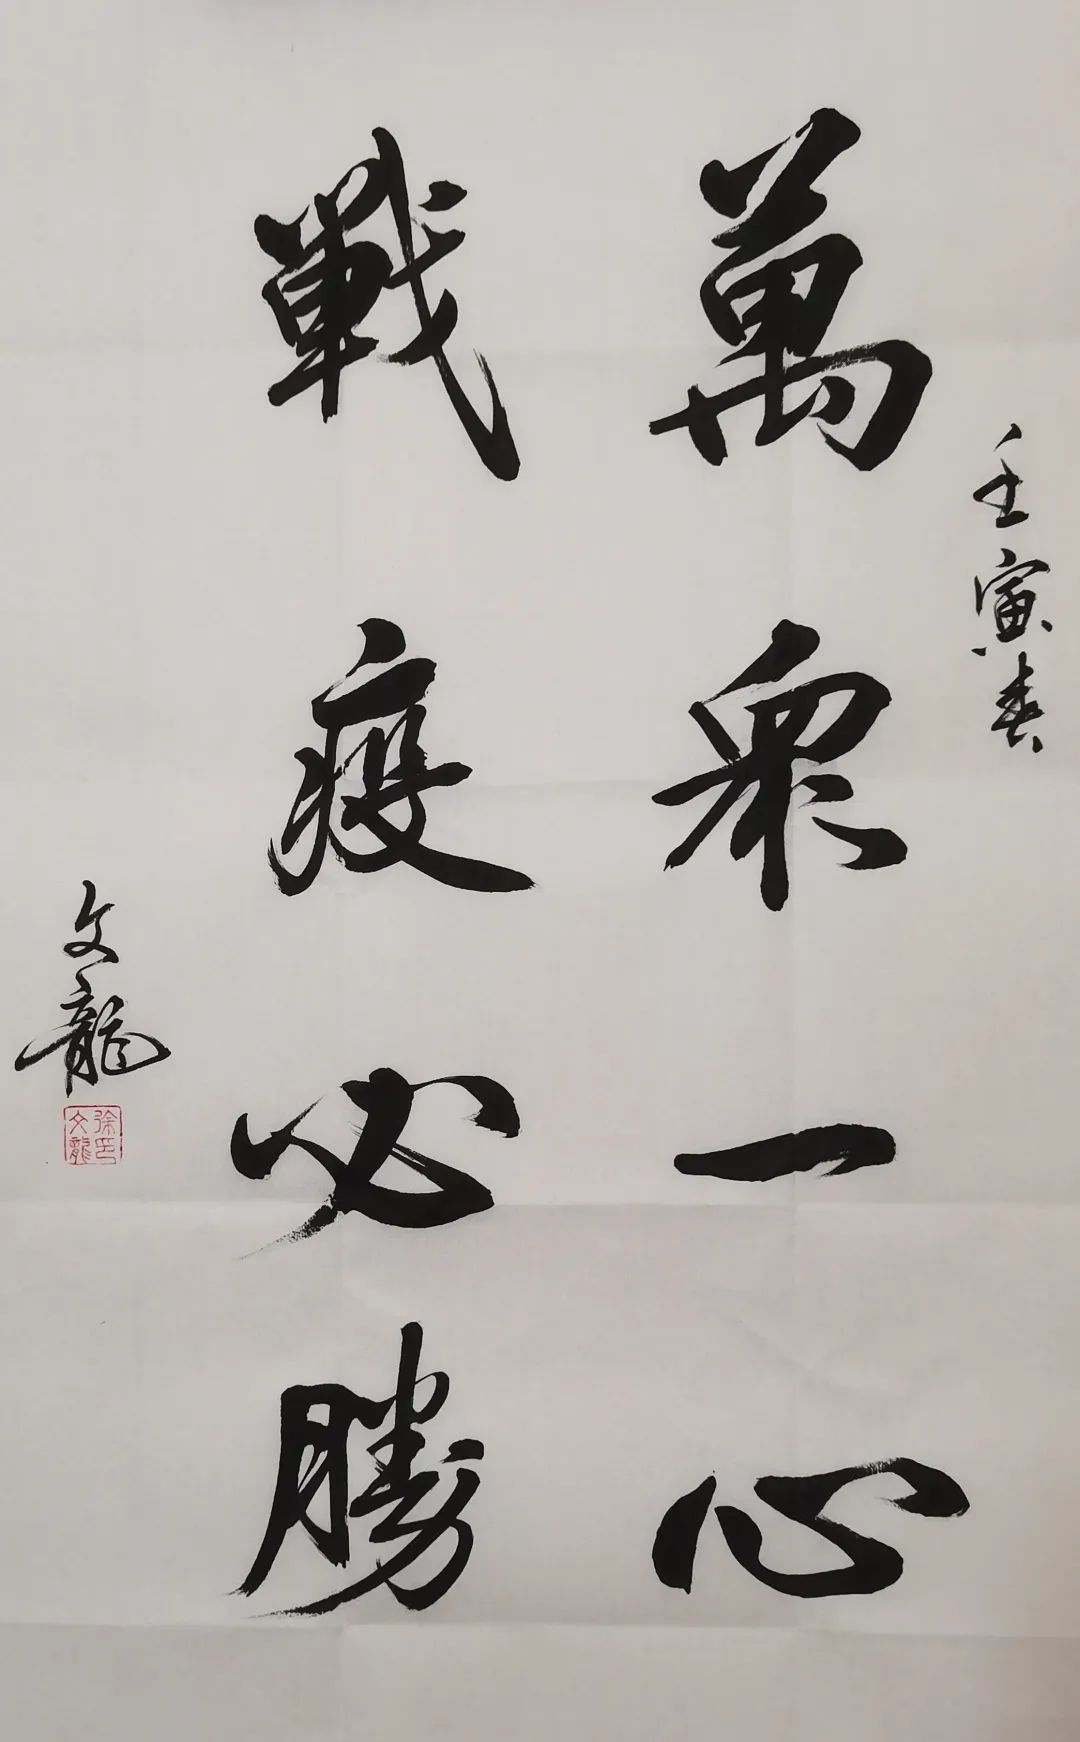 壬寅春
萬衆一心
戰疫必勝
文龍
徐文龍印